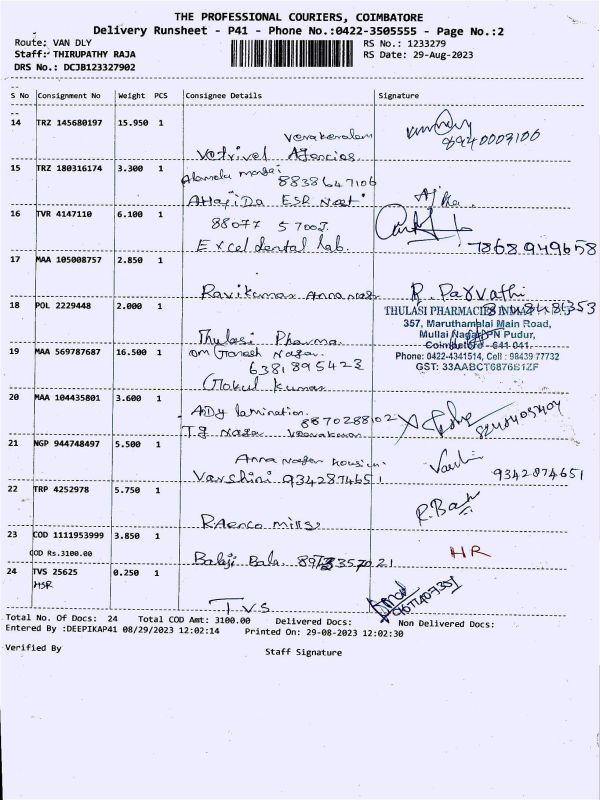 THE PROFESSIONAL COURIERS, COIMBATORE
Delivery Runsheet - P41 - Phone No.:0422-3505555 - Page No.:2
Route: VAN DLY
RS No.: 1233279
Staff: THIRUPATHY RAJA
RS Date: 29-Aug-2023
DRS No.: DCJB123327902
S No Consignment No Weight PCS Consignee Details Signature
14 TRZ 145680197 15.950 1
Vetrivel Agencies
8940007100
15 TRZ 180316174 3.300 1
8838647106
16 TVR 4147110 6.100 1
88077 5700
Excel dental lab.
7868949658
17 MAA 105008757 2.850 1
Ravikumar Anna nagar
R. Parvathi
18 POL 2229448 2.000 1
THULASI PHARMACIES INDIA
357, Maruthamalai Main Road,
Mullai Nagar, PN Pudur,
Coimbatore - 641 041.
Phone: 0422-4341514, Cell : 98439 77732
GST: 33AABCT6876B1ZF
Thulasi Pharma
19 MAA 569787687 16.500 1
om Ganesh Nagar
6381895423
Gokul kumar
20 MAA 104435801 3.600 1
ADy lamination.
8870288102
T.g Nagar
21 NGP 944748497 5.500 1
Anna nagar housin
Varshini 9342874651
9342874651
22 TRP 4252978 5.750 1
R.Bala
mills
23 COD 1111953999 3.850 1
COD Rs.3100.00
Balaji Bala
HR
24 TVS 25625 0.250 1
HSR
T.V.S
Total No. Of Docs: 24 Total COD Amt: 3100.00 Delivered Docs: Non Delivered Docs:
Entered By :DEEPIKAP41 08/29/2023 12:02:14 Printed On: 29-08-2023 12:02:30
Verified By
Staff Signature